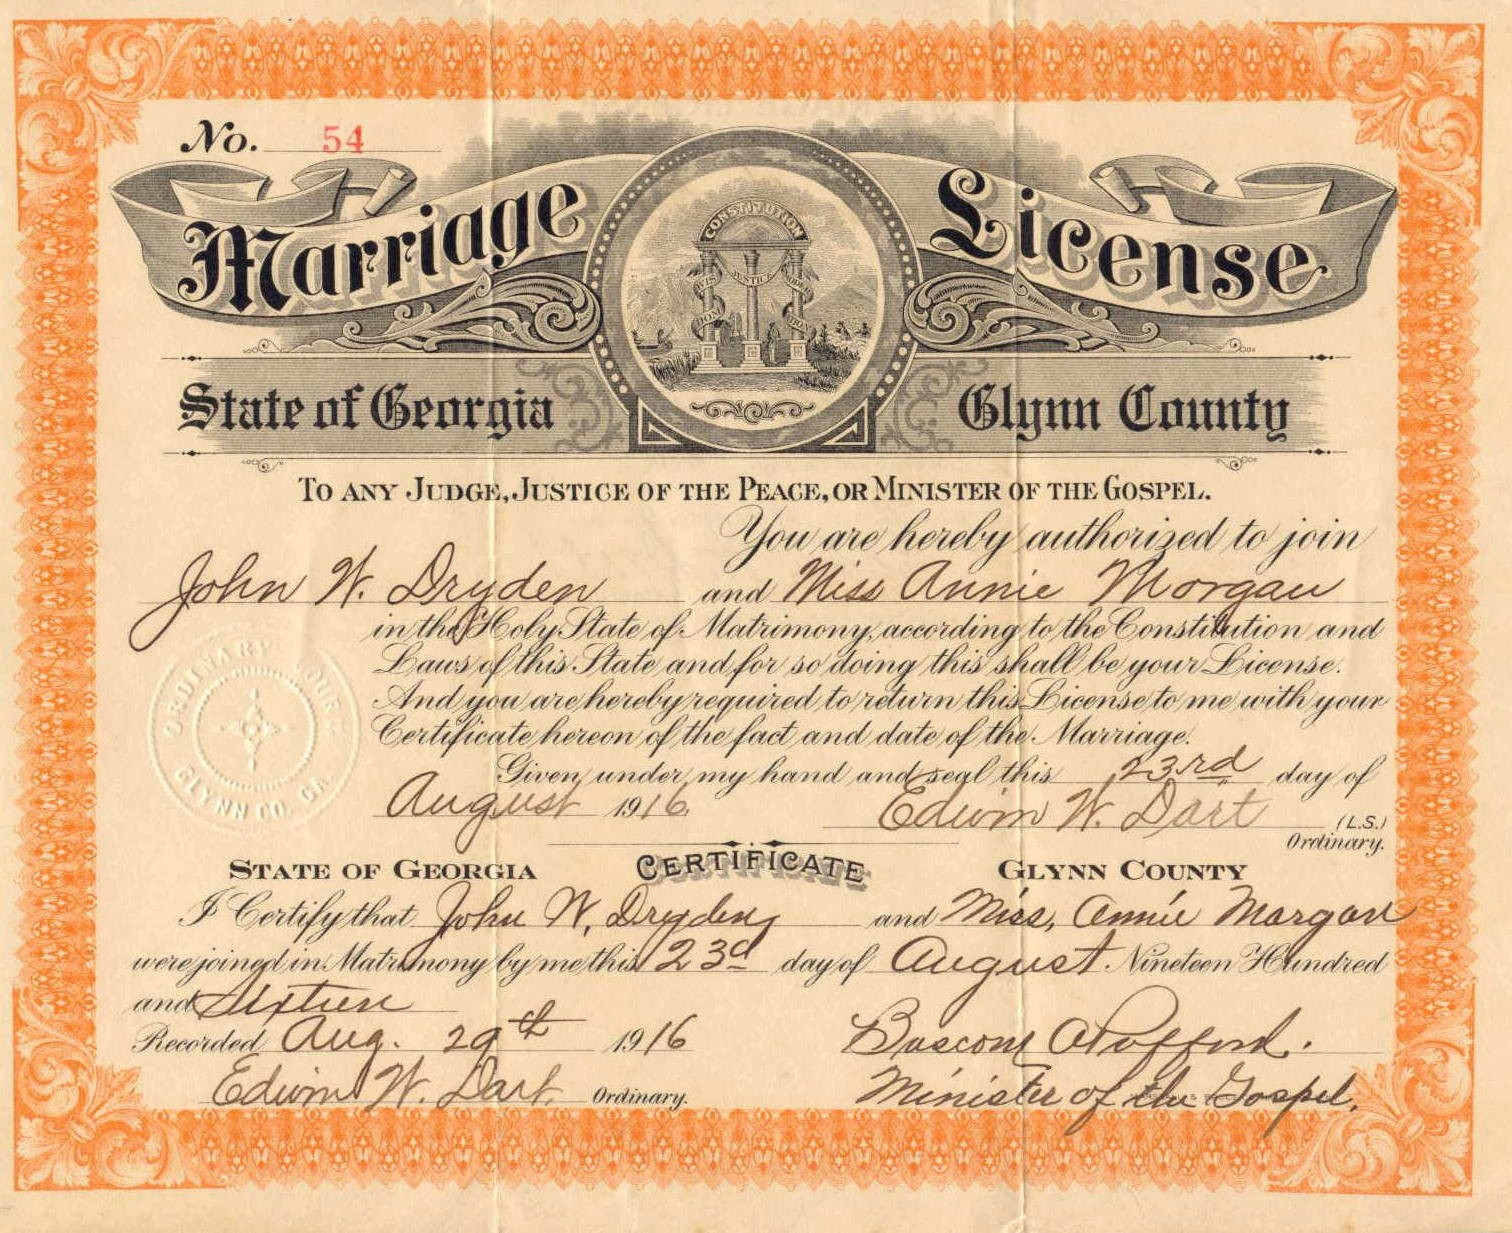 No. 54
Marriage License
CONSTITUTION
WISDOM JUSTICE MODERATION
State of Georgia Glynn County
TO ANY JUDGE, JUSTICE OF THE PEACE, OR MINISTER OF THE GOSPEL.
You are hereby authorized to join
John W. Dryden and Miss Annie Morgan
in the Holy State of Matrimony, according to the Constitution and
Laws of this State and for so doing this shall be your License.
And you are hereby required to return this License to me with your
Certificate hereon of the fact and date of the Marriage.
Given under my hand and seal this 23rd day of
August 1916 Edwin W. Dart (L.S.)
Ordinary.
ORDINARY COURT
GLYNN CO. GA.
STATE OF GEORGIA CERTIFICATE GLYNN COUNTY
I Certify that John W. Dryden and Miss, Annie Morgan
were joined in Matrimony by me this 23d day of August Nineteen Hundred
and Sixteen
Recorded Aug. 29th 1916 Bascom
Edwin W. Dart. Ordinary. Minister of the Gospel.